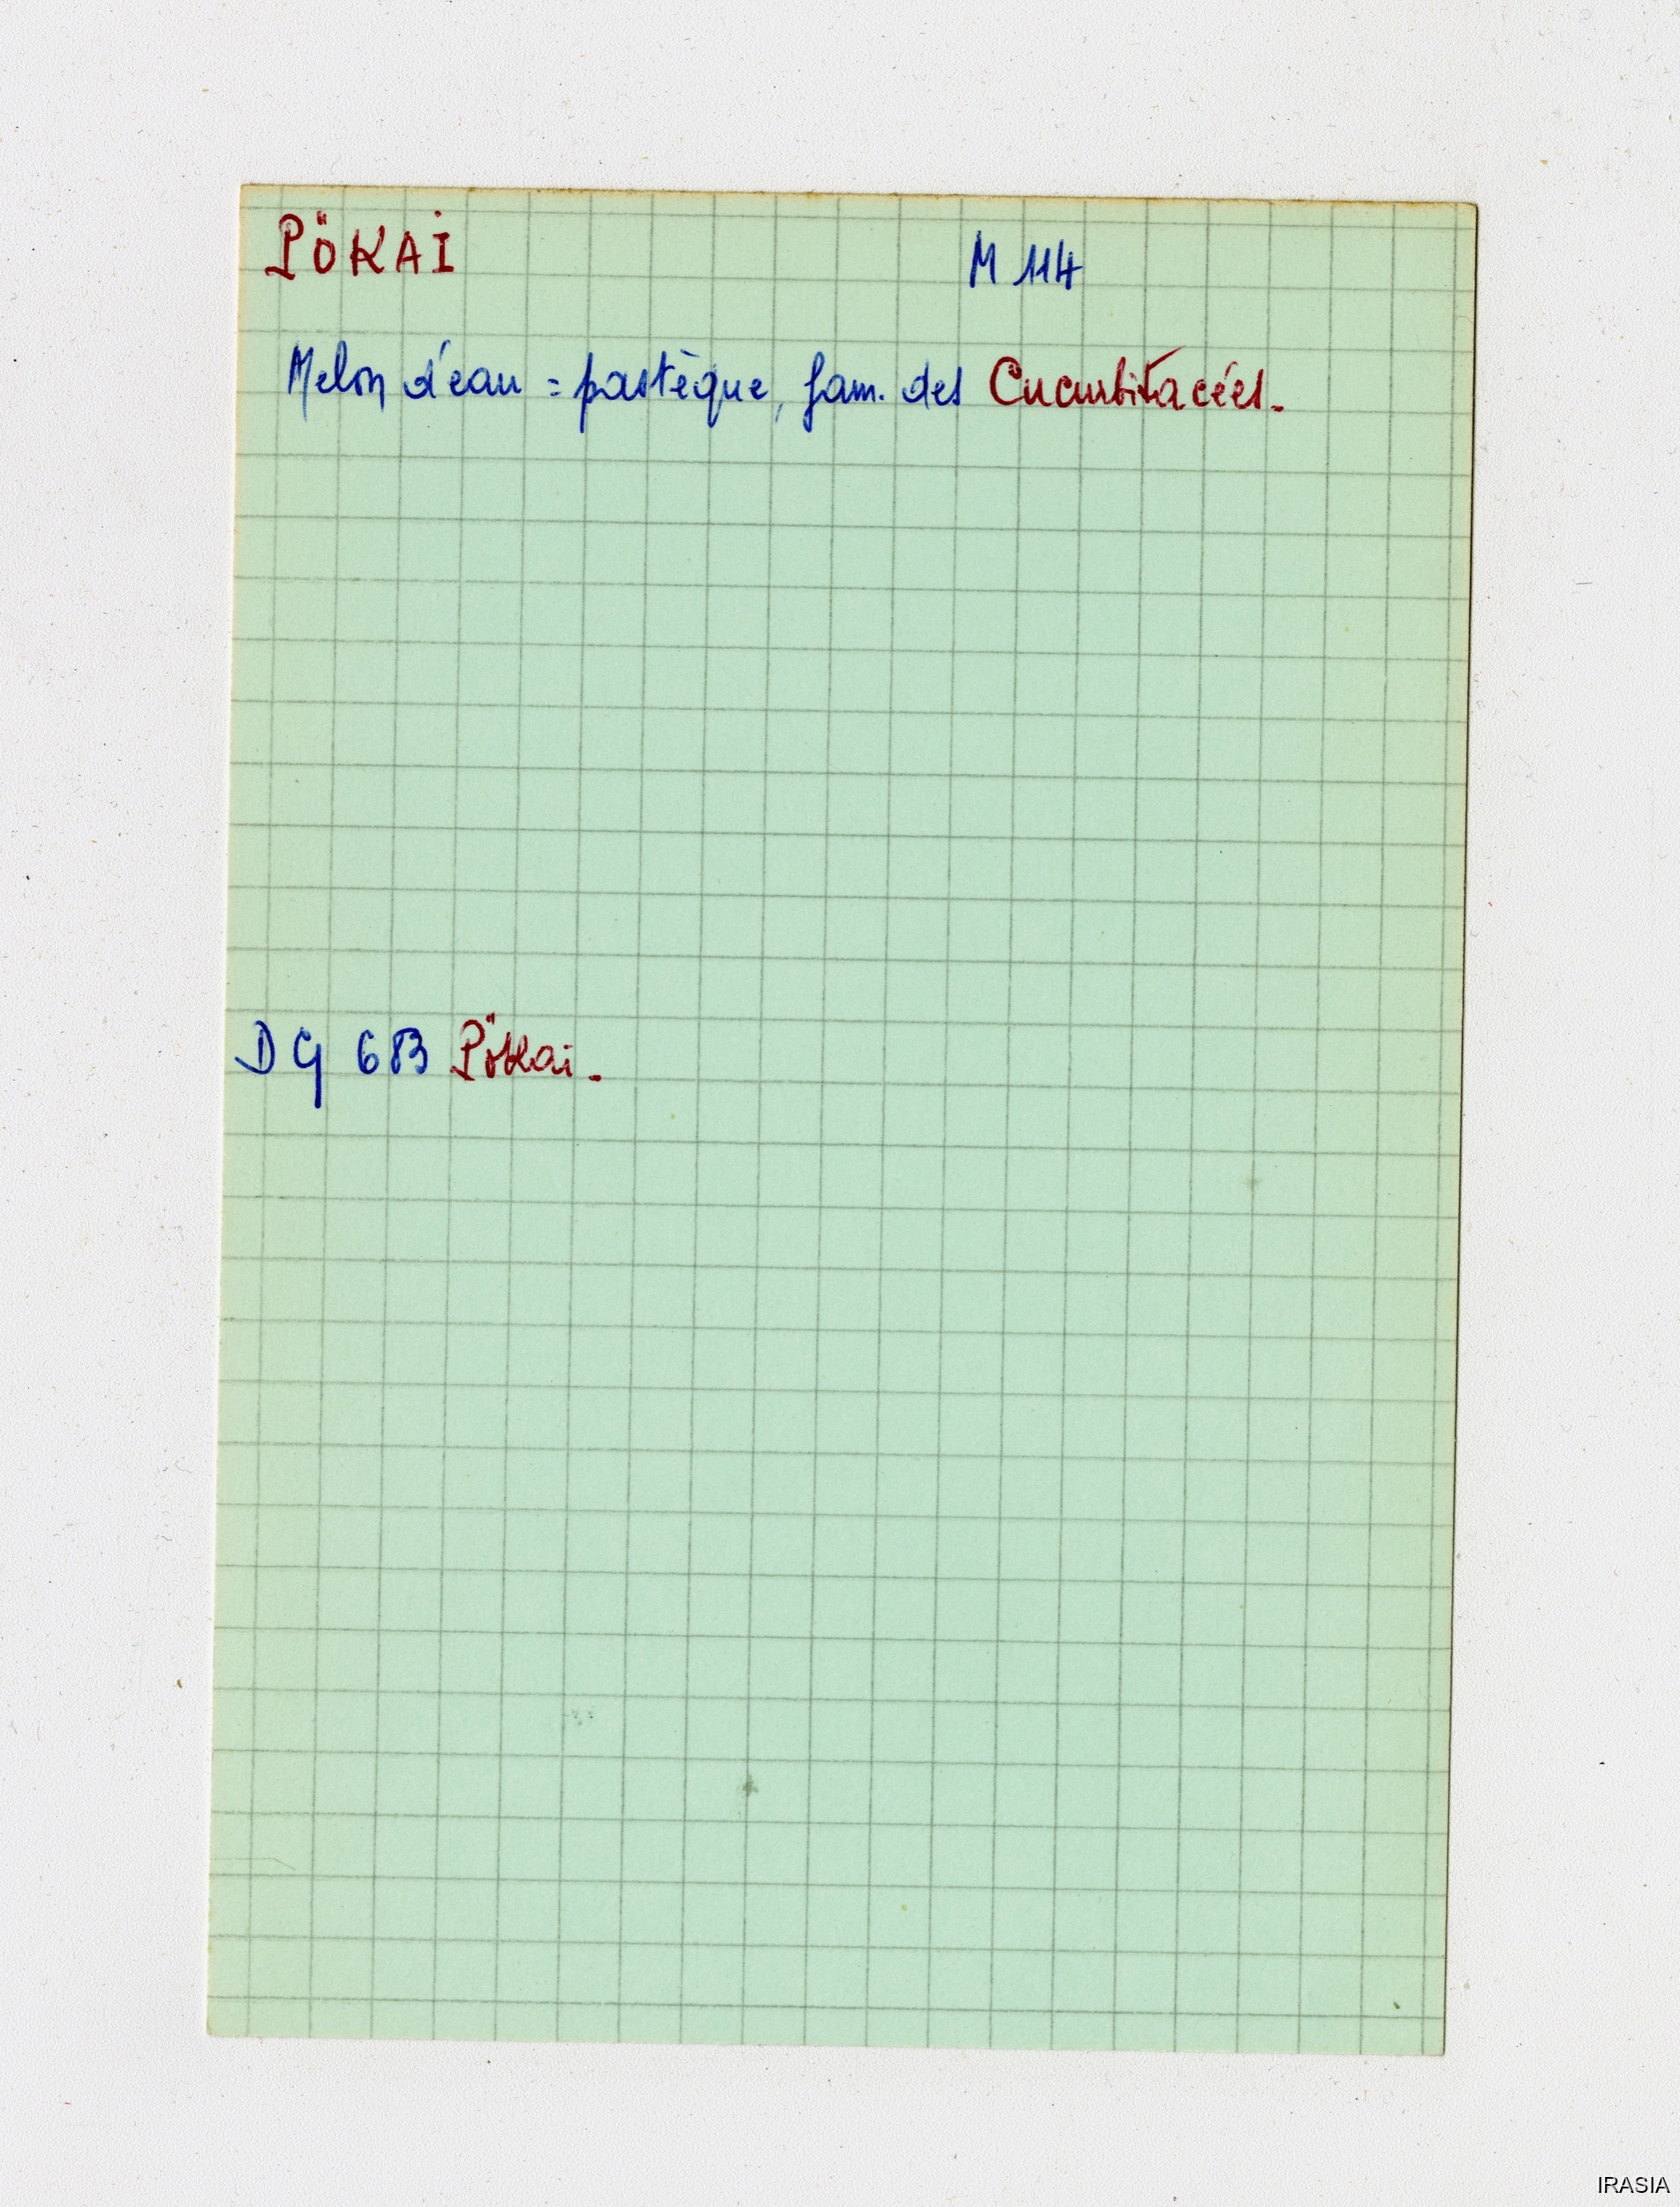 PÖKAI M 114
Melon d'eau = pastèque, fam. des Cucurbitacées.
DG 683 Pökai.
IRASIA